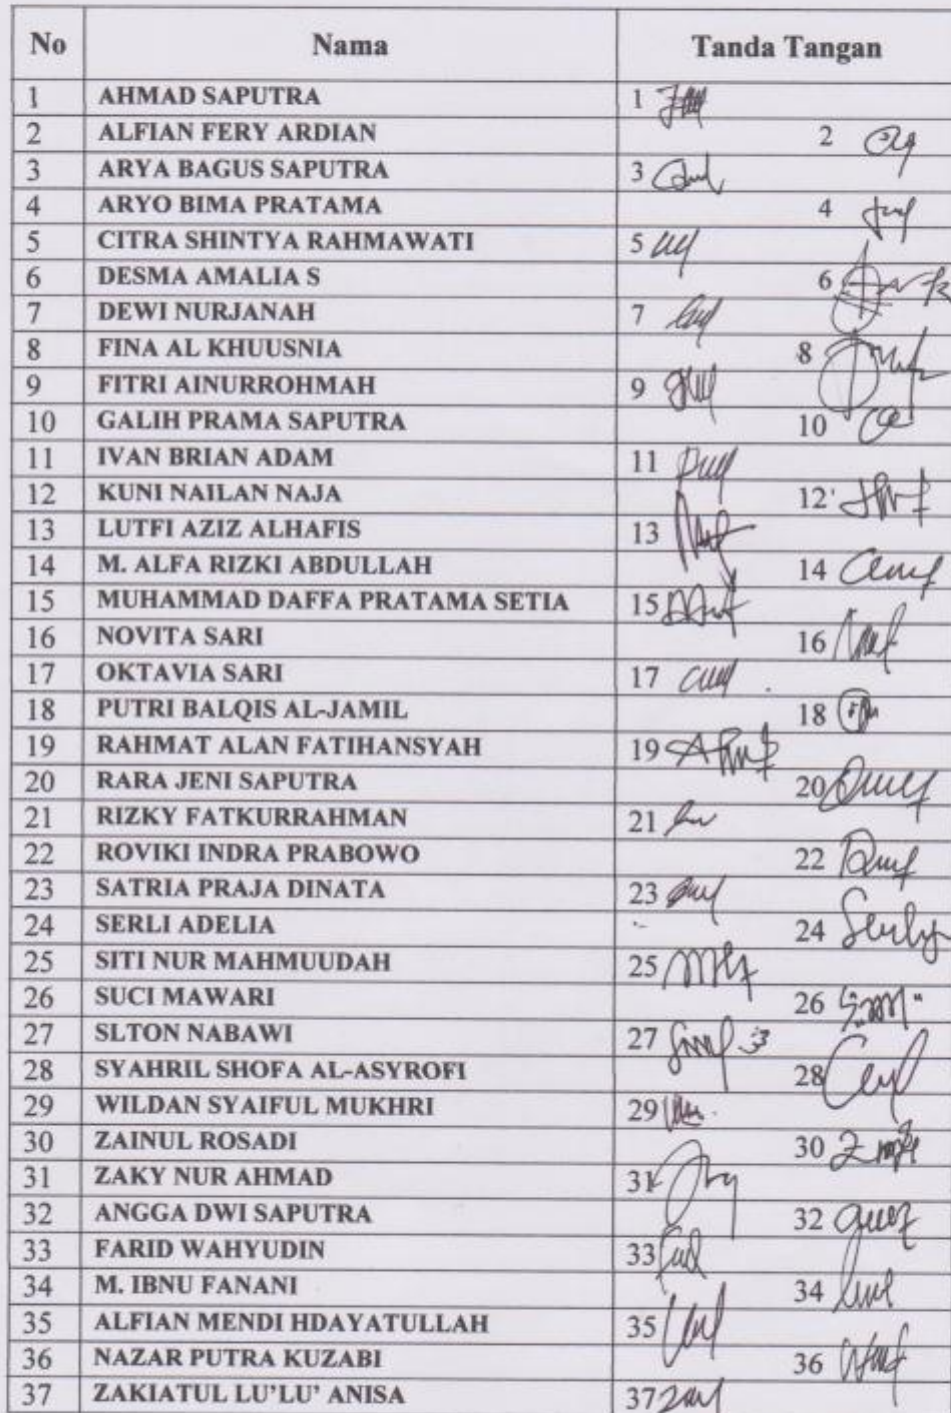 No Nama Tanda Tangan
1 AHMAD SAPUTRA 1
2 ALFIAN FERY ARDIAN 2
3 ARYA BAGUS SAPUTRA 3
4 ARYO BIMA PRATAMA 4
5 CITRA SHINTYA RAHMAWATI 5
6 DESMA AMALIA S 6
7 DEWI NURJANAH 7
8 FINA AL KHUUSNIA 8
9 FITRI AINURROHMAH 9
10 GALIH PRAMA SAPUTRA 10
11 IVAN BRIAN ADAM 11
12 KUNI NAILAN NAJA 12
13 LUTFI AZIZ ALHAFIS 13
14 M. ALFA RIZKI ABDULLAH 14
15 MUHAMMAD DAFFA PRATAMA SETIA 15
16 NOVITA SARI 16
17 OKTAVIA SARI 17
18 PUTRI BALQIS AL-JAMIL 18
19 RAHMAT ALAN FATIHANSYAH 19
20 RARA JENI SAPUTRA 20
21 RIZKY FATKURRAHMAN 21
22 ROVIKI INDRA PRABOWO 22
23 SATRIA PRAJA DINATA 23
24 SERLI ADELIA 24
25 SITI NUR MAHMUUDAH 25
26 SUCI MAWARI 26
27 SLTON NABAWI 27
28 SYAHRIL SHOFA AL-ASYROFI 28
29 WILDAN SYAIFUL MUKHRI 29
30 ZAINUL ROSADI 30
31 ZAKY NUR AHMAD 31
32 ANGGA DWI SAPUTRA 32
33 FARID WAHYUDIN 33
34 M. IBNU FANANI 34
35 ALFIAN MENDI HDAYATULLAH 35
36 NAZAR PUTRA KUZABI 36
37 ZAKIATUL LU'LU' ANISA 37